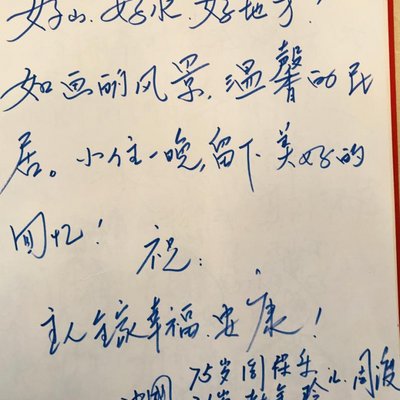 好山、好水、好地方!
如画的风景,温馨的民
居。小住一晚,留下美好的
回忆!
祝:
主人全家幸福、安康!
75岁